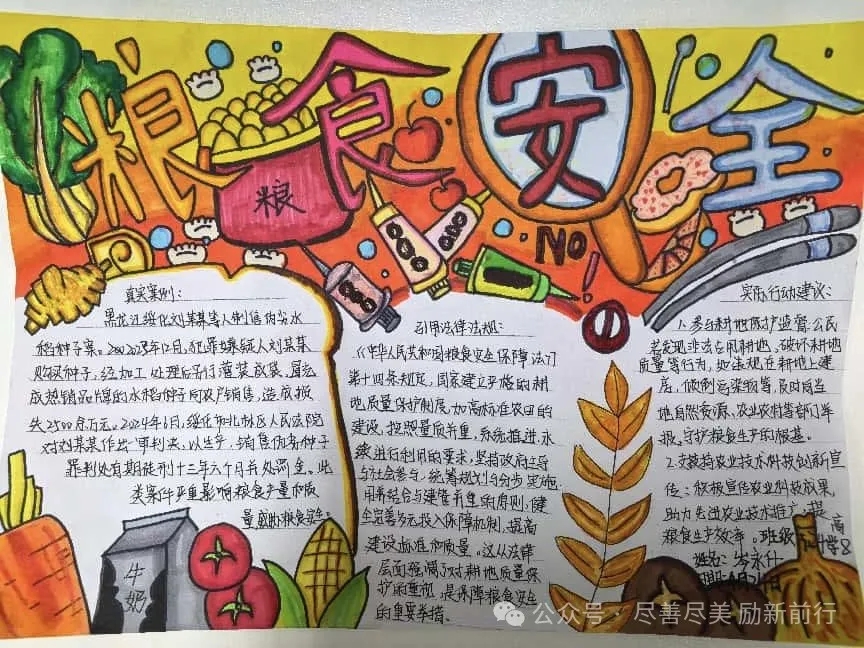 粮食安全
粮
NO
!
真实案例:
黑龙江绥化刘某某等人制售伪劣水
稻种子案。2023年12月,犯罪嫌疑人刘某某
购买种子,经加工处理后另行灌装成袋,冒充
成热销品牌的水稻种子向农户销售,造成损
失2500余万元。2024年6月,绥化市北林区人民法院
对刘某某作出一审判决,以生产、销售伪劣种子
罪判处有期徒刑十三年六个月并处罚金。此
类案件严重影响粮食产量和质
量,威胁粮食安全。
引用法律法规:
《中华人民共和国粮食安全保障法》
第十四条规定,国家建立严格的耕
地质量保护制度,加高标准农田的
建设,按照量质并重,系统推进,永
续进行利用的要求,坚持政府主导
与社会参与,统筹规划与分步实施,
用养结合与建管并重的原则,健
全完善多元投入保障机制,提高
建设标准和质量。这从法律
层面强调了对耕地质量保
护的重视,是保障粮食安全
的重要举措。
实际行动建议:
1.参与耕地保护监督:公民
若发现非法占用耕地,破坏耕地
质量等行为,如违规在耕地上建
房、倾倒污染物等,及时向当
地自然资源、农业农村等部门举
报,守护粮食生产的根基。
2.支持农业技术科技创新宣
传:积极宣传农业科技成果,
助力先进农业技术推广,提高
粮食生产效率。
班级
姓名:岑永什
牛
奶
公众号 · 尽善尽美 励新前行